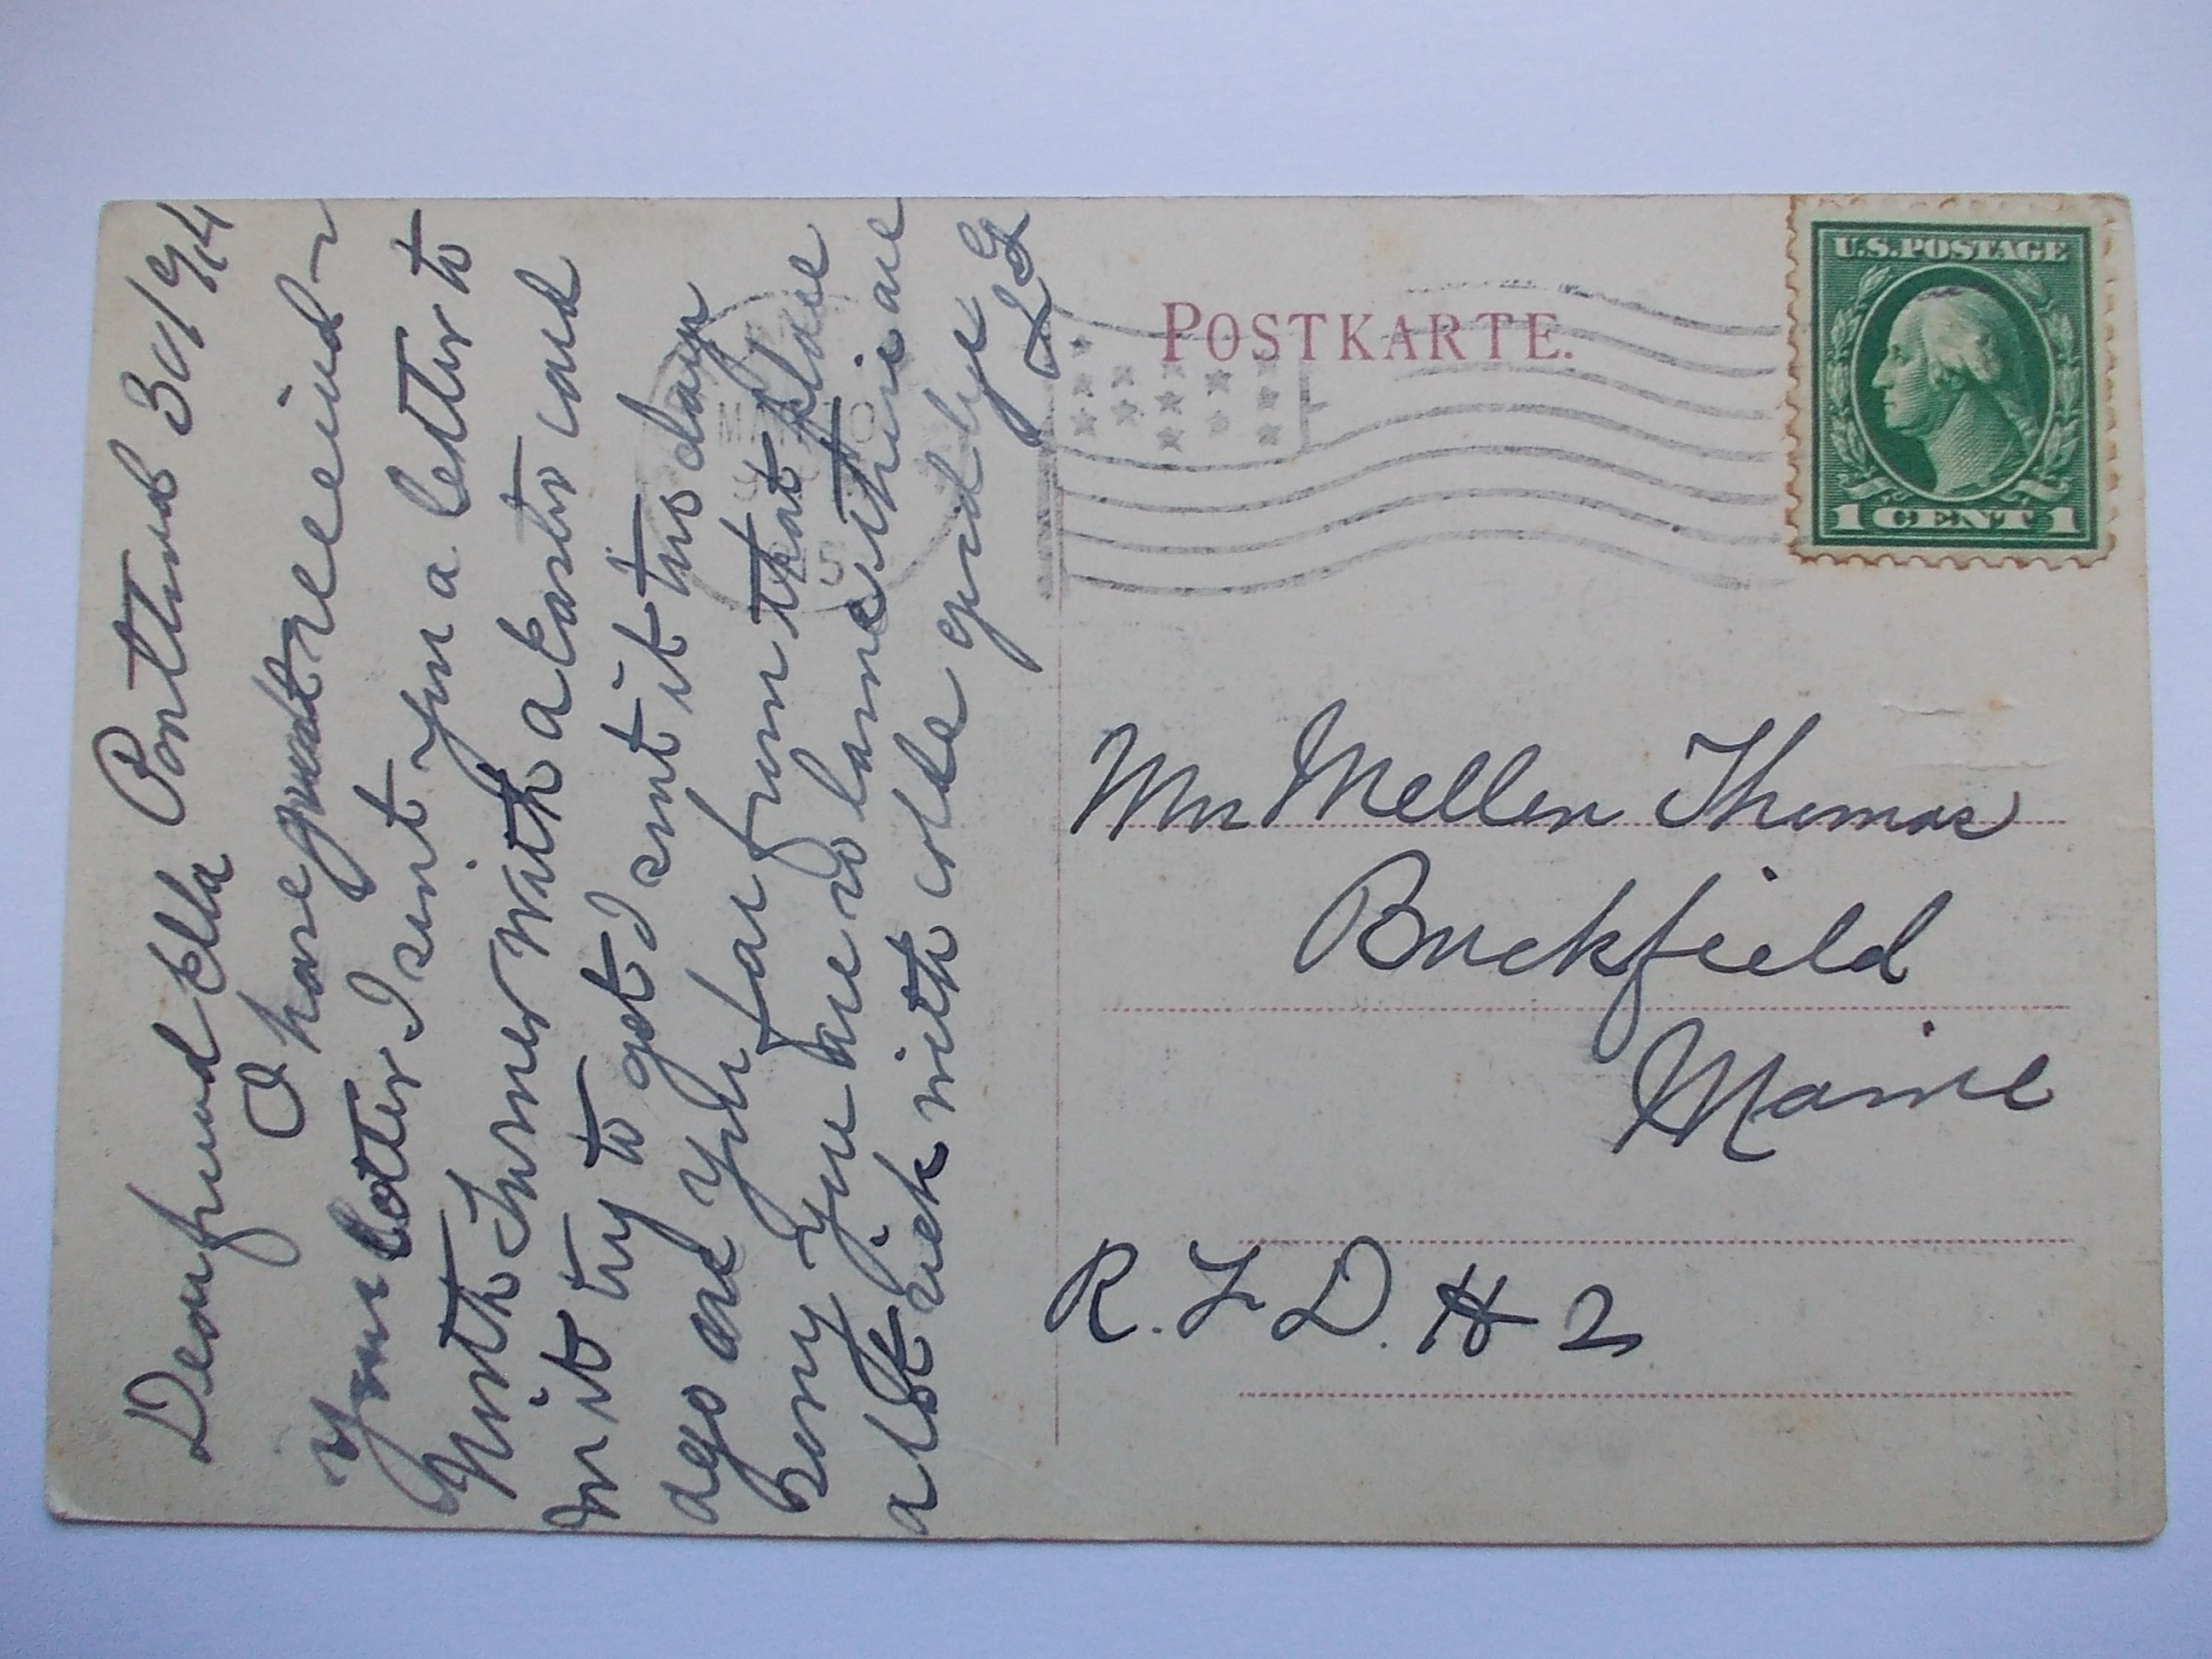 Dear friend Ella Portland 30/914
I have just received
your letter I sent you a letter to
North Turner with a Easter card
in it try to get I sent it two days
ago are you far from that place
Sorry you are so lame there are
a lot sick with colds good bye
POSTKARTE.
U.S. POSTAGE
1 CENT 1
Mrs Mellen Thomas
Buckfield
Maine
R. F. D. # 2